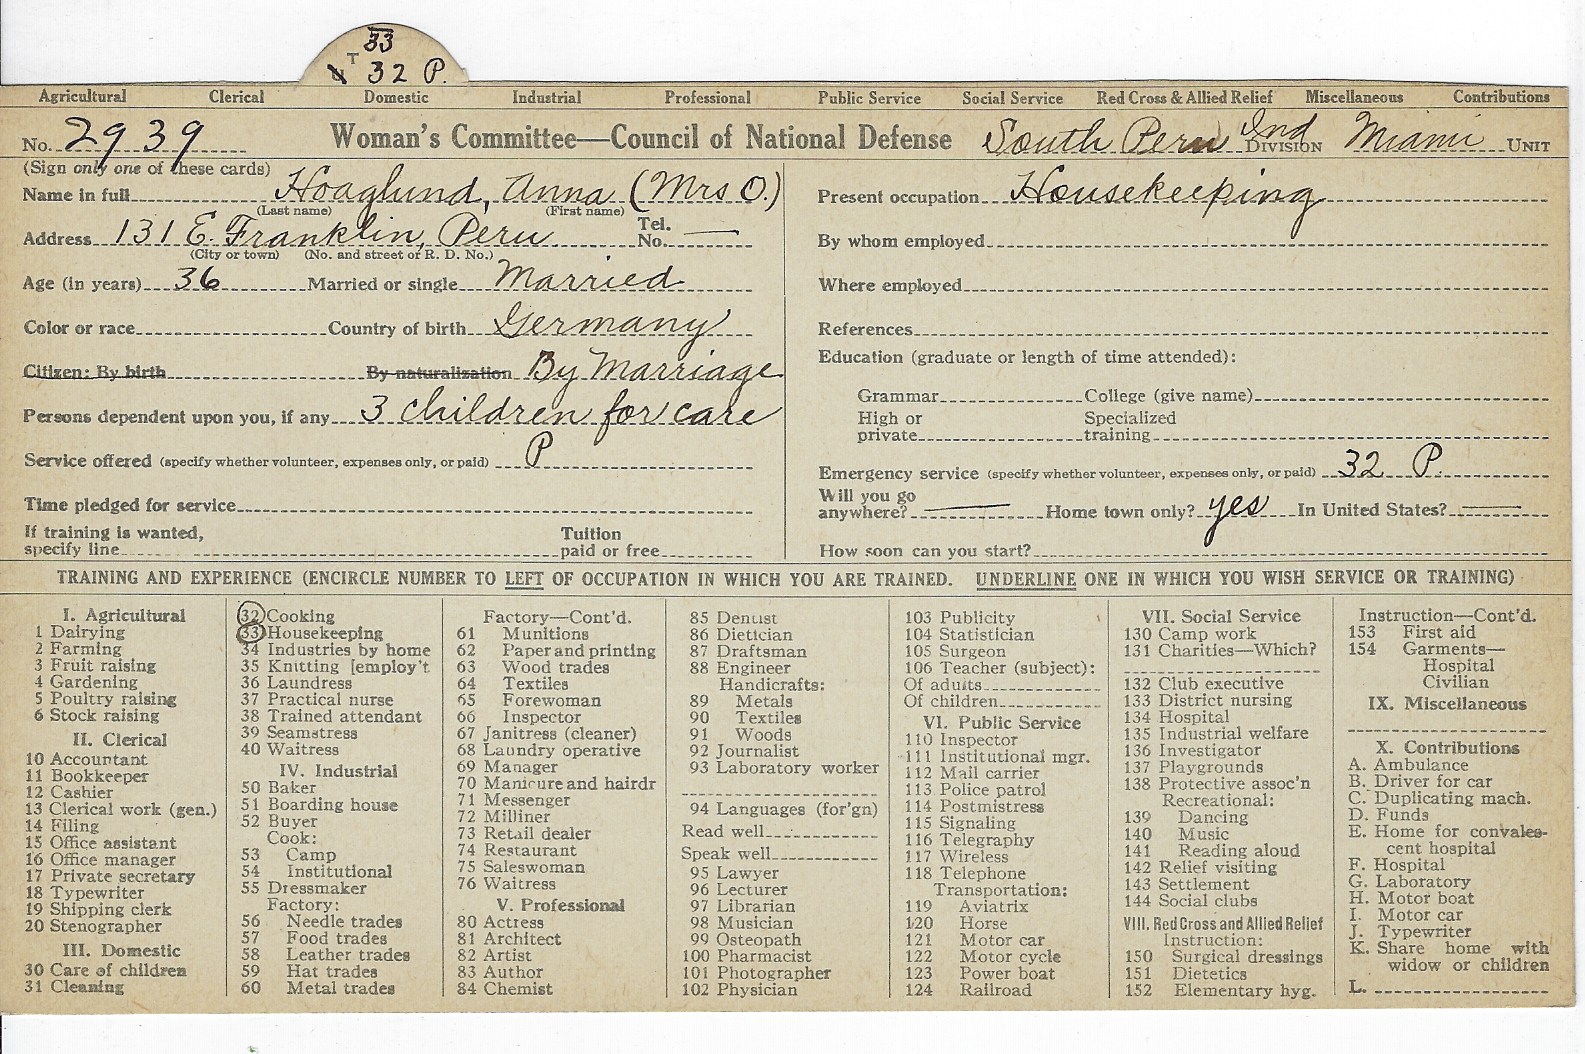 33
T
32 P.
Agricultural Clerical Domestic Industrial Professional Public Service Social Service Red Cross & Allied Relief Miscellaneous Contributions
No. 2939 Woman's Committee—Council of National Defense South Peru Ind DIVISION Miami UNIT
(Sign only one of these cards)
Name in full Hoaglund, Anna (Mrs O.)
(Last name) (First name)
Address 131 E. Franklin, Peru Tel. No. —
(City or town) (No. and street or R. D. No.)
Age (in years) 36 Married or single Married
Color or race Country of birth Germany
Citizen: By birth By naturalization By Marriage
Persons dependent upon you, if any 3 children for care
Service offered (specify whether volunteer, expenses only, or paid) P
Time pledged for service
If training is wanted, specify line Tuition paid or free
Present occupation Housekeeping
By whom employed
Where employed
References
Education (graduate or length of time attended):
Grammar College (give name)
High or private Specialized training
Emergency service (specify whether volunteer, expenses only, or paid) 32 P.
Will you go anywhere? — Home town only? yes In United States? —
How soon can you start?
TRAINING AND EXPERIENCE (ENCIRCLE NUMBER TO LEFT OF OCCUPATION IN WHICH YOU ARE TRAINED. UNDERLINE ONE IN WHICH YOU WISH SERVICE OR TRAINING)
I. Agricultural
1 Dairying
2 Farming
3 Fruit raising
4 Gardening
5 Poultry raising
6 Stock raising
II. Clerical
10 Accountant
11 Bookkeeper
12 Cashier
13 Clerical work (gen.)
14 Filing
15 Office assistant
16 Office manager
17 Private secretary
18 Typewriter
19 Shipping clerk
20 Stenographer
III. Domestic
30 Care of children
31 Cleaning
32 Cooking
33 Housekeeping
34 Industries by home
35 Knitting [employ't
36 Laundress
37 Practical nurse
38 Trained attendant
39 Seamstress
40 Waitress
IV. Industrial
50 Baker
51 Boarding house
52 Buyer
Cook:
53 Camp
54 Institutional
55 Dressmaker
Factory:
56 Needle trades
57 Food trades
58 Leather trades
59 Hat trades
60 Metal trades
Factory—Cont'd.
61 Munitions
62 Paper and printing
63 Wood trades
64 Textiles
65 Forewoman
66 Inspector
67 Janitress (cleaner)
68 Laundry operative
69 Manager
70 Manicure and hairdr
71 Messenger
72 Milliner
73 Retail dealer
74 Restaurant
75 Saleswoman
76 Waitress
V. Professional
80 Actress
81 Architect
82 Artist
83 Author
84 Chemist
85 Dentist
86 Dietician
87 Draftsman
88 Engineer
Handicrafts:
89 Metals
90 Textiles
91 Woods
92 Journalist
93 Laboratory worker
94 Languages (for'gn)
Read well
Speak well
95 Lawyer
96 Lecturer
97 Librarian
98 Musician
99 Osteopath
100 Pharmacist
101 Photographer
102 Physician
103 Publicity
104 Statistician
105 Surgeon
106 Teacher (subject):
Of adults
Of children
VI. Public Service
110 Inspector
111 Institutional mgr.
112 Mail carrier
113 Police patrol
114 Postmistress
115 Signaling
116 Telegraphy
117 Wireless
118 Telephone
Transportation:
119 Aviatrix
120 Horse
121 Motor car
122 Motor cycle
123 Power boat
124 Railroad
VII. Social Service
130 Camp work
131 Charities—Which?
132 Club executive
133 District nursing
134 Hospital
135 Industrial welfare
136 Investigator
137 Playgrounds
138 Protective assoc'n
Recreational:
139 Dancing
140 Music
141 Reading aloud
142 Relief visiting
143 Settlement
144 Social clubs
VIII. Red Cross and Allied Relief
Instruction:
150 Surgical dressings
151 Dietetics
152 Elementary hyg.
Instruction—Cont'd.
153 First aid
154 Garments—
Hospital
Civilian
IX. Miscellaneous
X. Contributions
A. Ambulance
B. Driver for car
C. Duplicating mach.
D. Funds
E. Home for convales-
cent hospital
F. Hospital
G. Laboratory
H. Motor boat
I. Motor car
J. Typewriter
K. Share home with
widow or children
L.